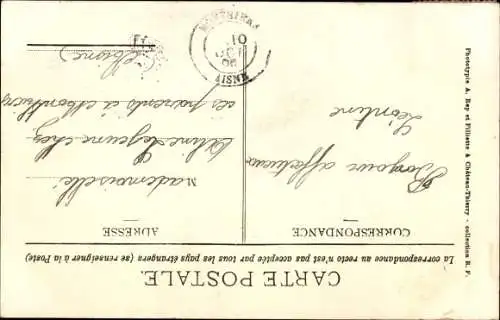 CARTE POSTALE.
La correspondance au recto n'est pas acceptée par tous les pays étrangers (se renseigner à la Poste)
CORRESPONDANCE
Bonjour affectueux
Léontine
ADRESSE
Mademoiselle
Lejeune chez
ses parents à
(Aisne)
AISNE
10
OCT
Phototypie A. Rep et Filliette à Château-Thierry - collection R. F.